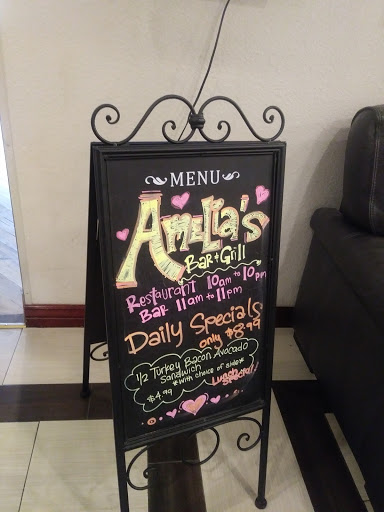 MENU
Amelia's
Bar + Grill
Restaurant 10am to 10pm
Bar 11am to 11pm
Daily Specials
only $8.99
1/2 Turkey Bacon Avocado
Sandwich
*with choice of side*
$4.99 Lunch Special!!